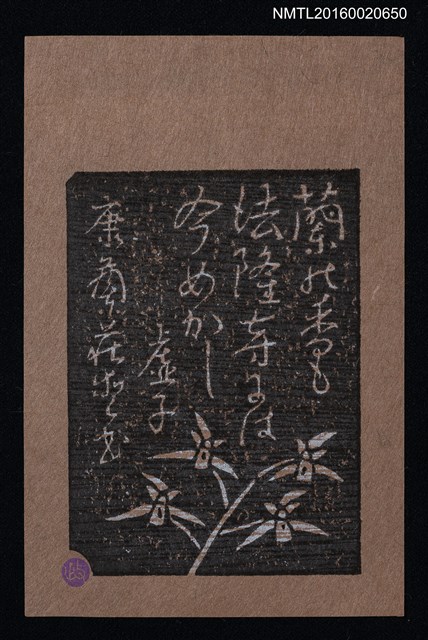 NMTL20160020650
蘭の香も
法隆寺には
今めかし
虚子
蘭